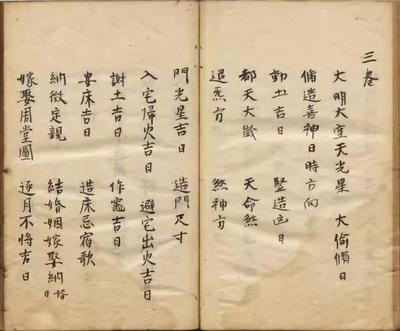 三卷
大明大空天光星 大偷脩日
脩造喜神日時方向
動土吉日 竪造凶日
都天大 天命煞
退炁方 煞神方
門光星吉日 造門尺寸
入宅歸火吉日 避宅出火吉日
謝土吉日 作竈吉日
安床吉日 造床忌宿歌
納徵定親 結婚姻嫁娶納婿日
嫁娶周堂圖 逐月不將吉日